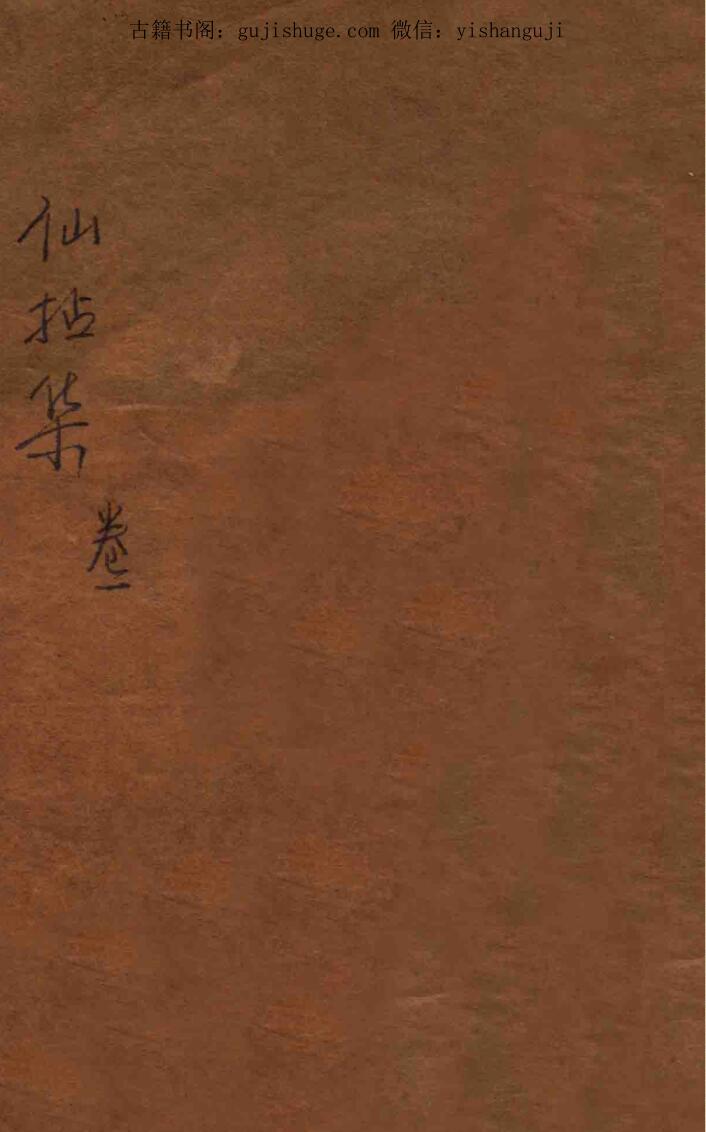 古籍书阁：gujishuge.com 微信：yishanguji
仙拈集
卷一